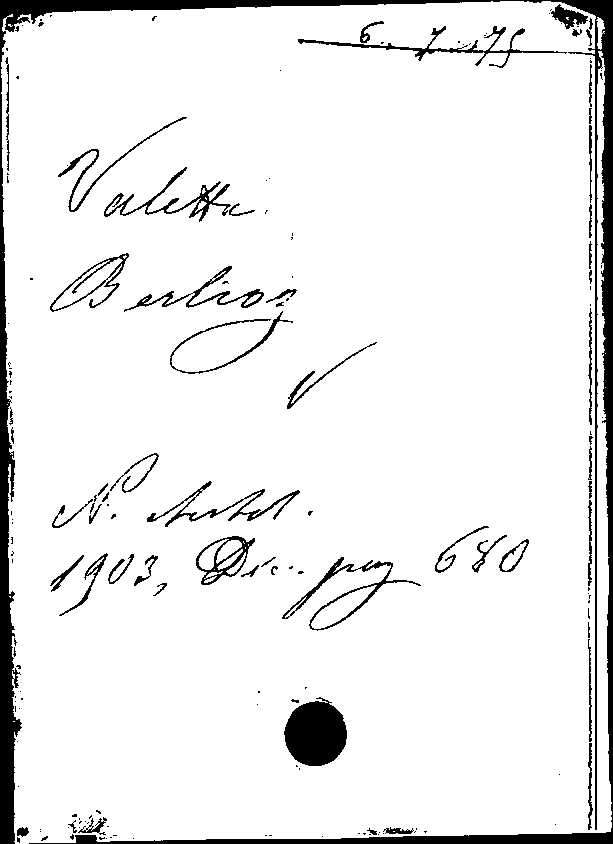 6. 7. 175
Valetta.
Berlioz
N. Antol.
1903, Dic. pag 680